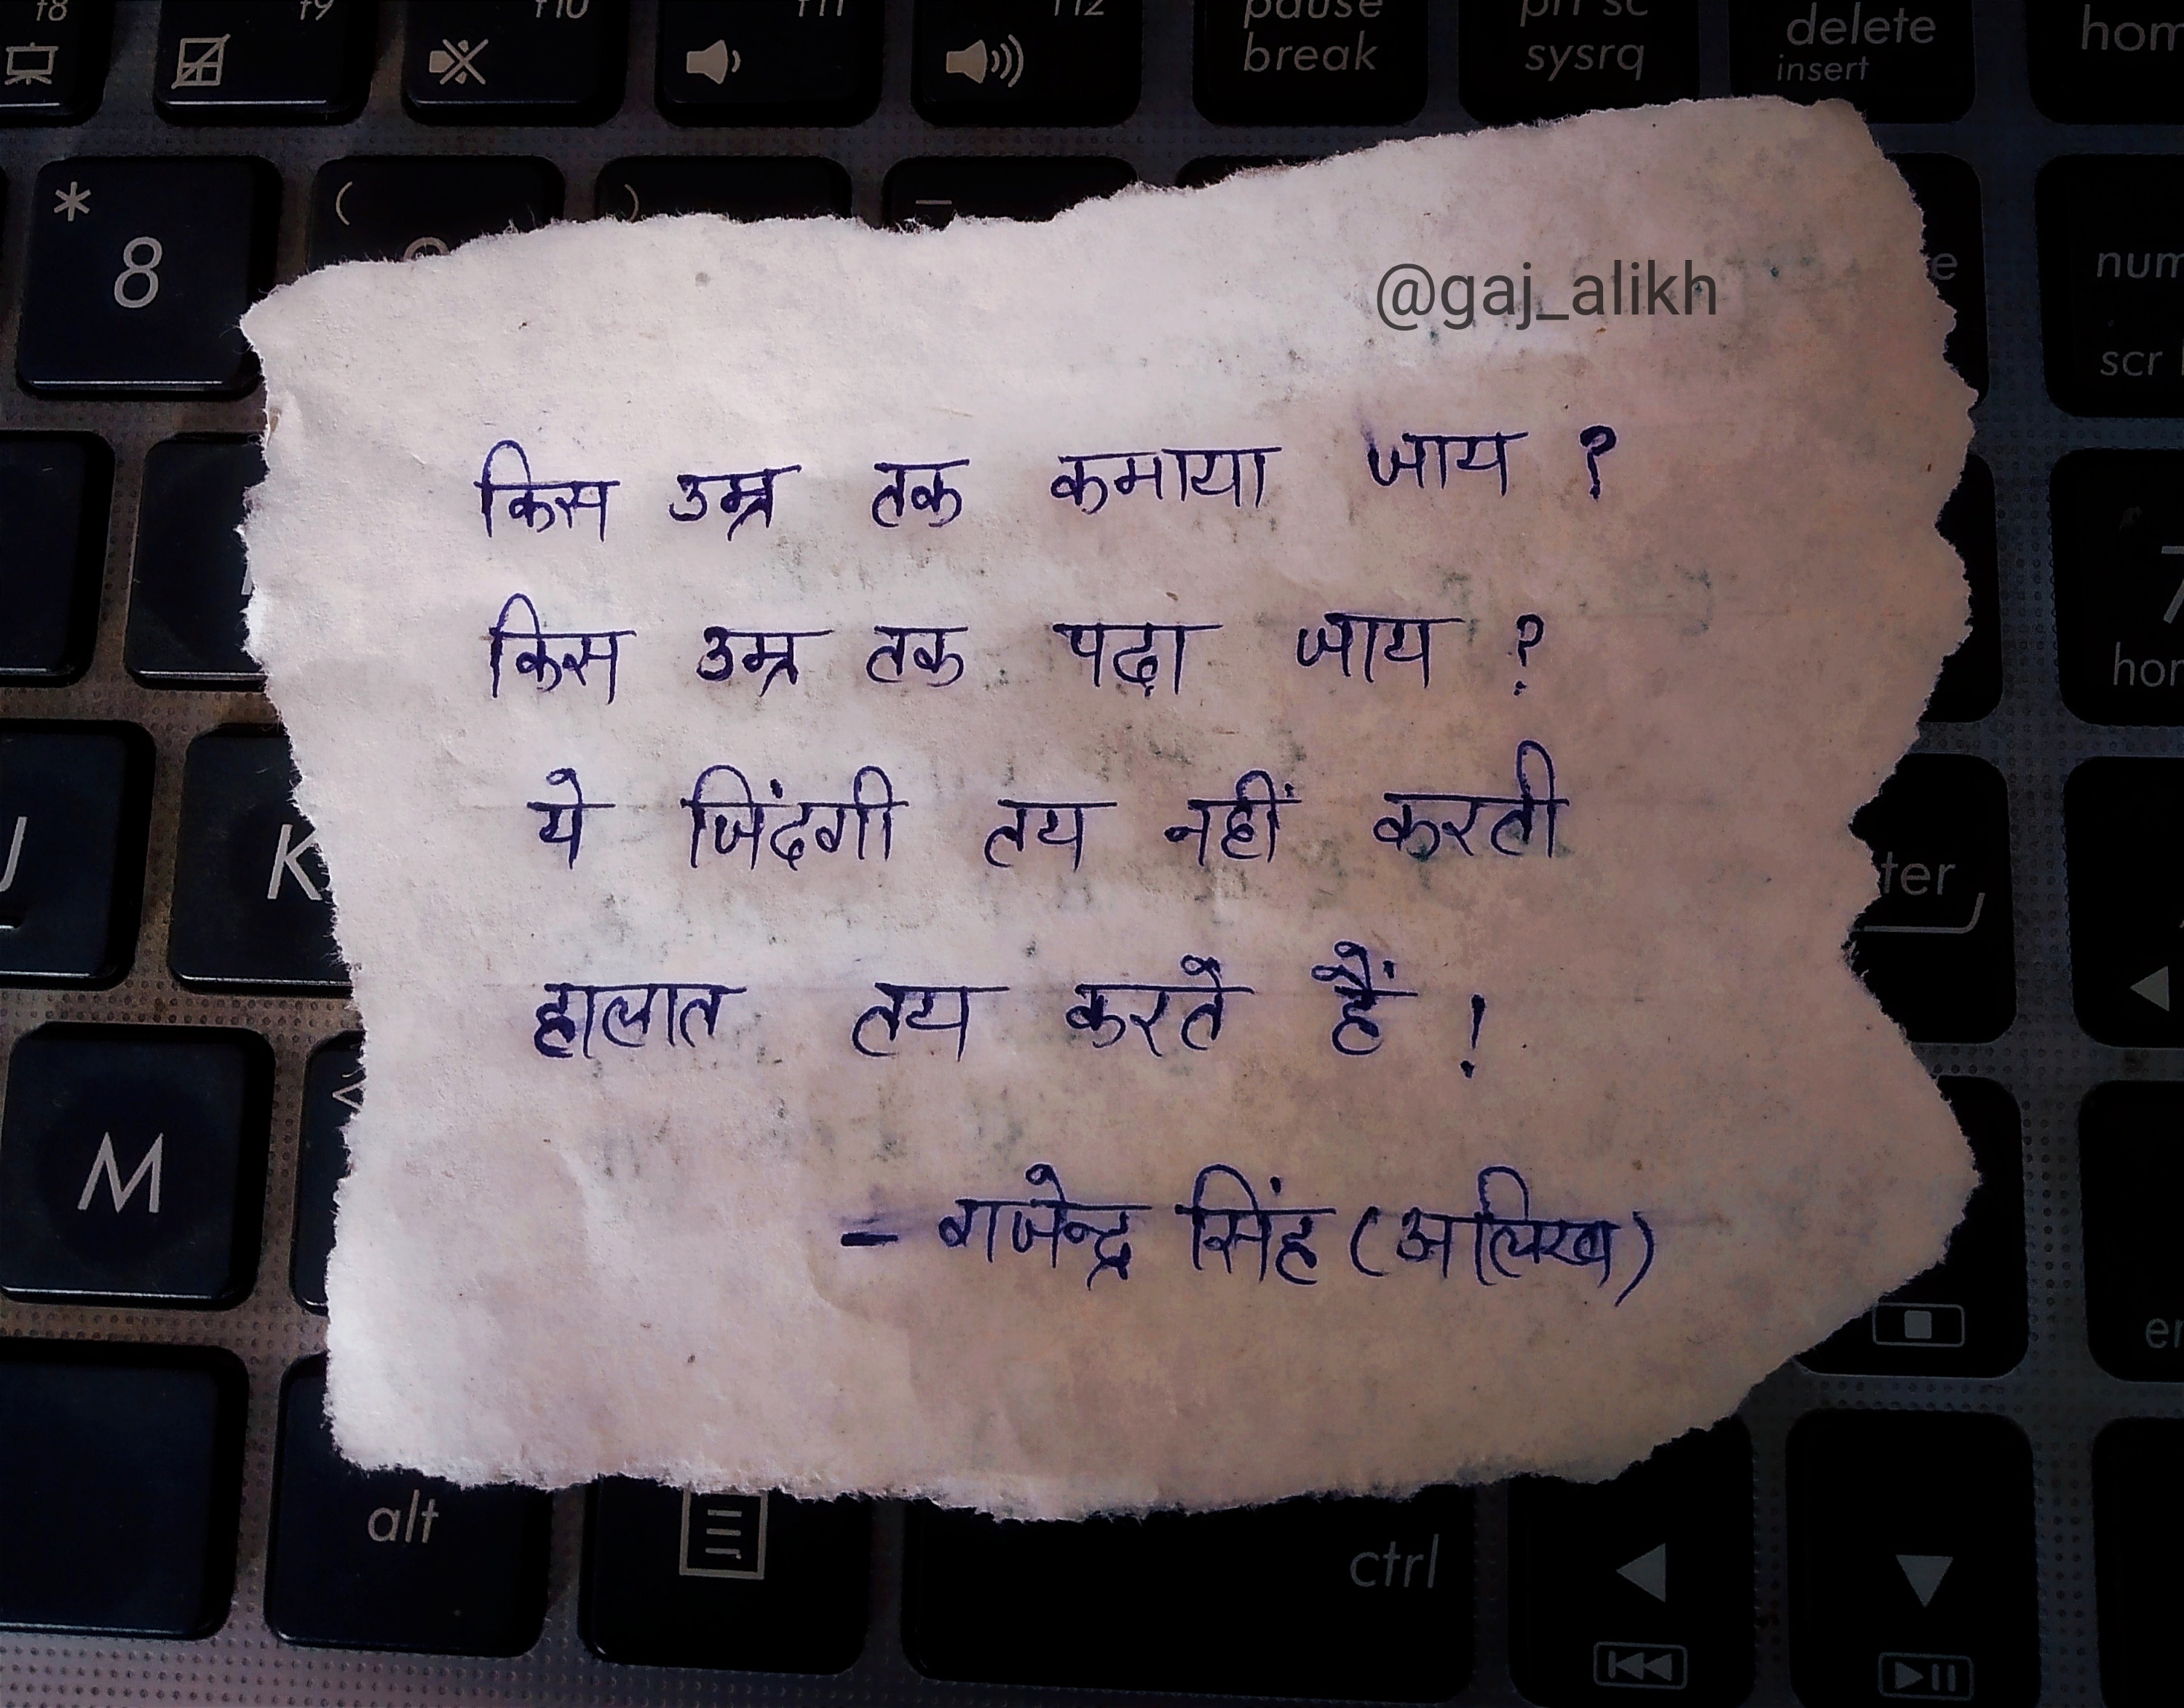 f8 f9 f10 f11 f12 pause break prt sc sysrq delete insert
* 8 ( ) _
@gaj_alikh
num
scr
किस उम्र तक कमाया जाय ?
किस उम्र तक पढ़ा जाय ?
7
ये जिंदगी तय नहीं करती
J K
हालात तय करते हैं !
M
- गजेन्द्र सिंह (अलिख)
alt
ctrl